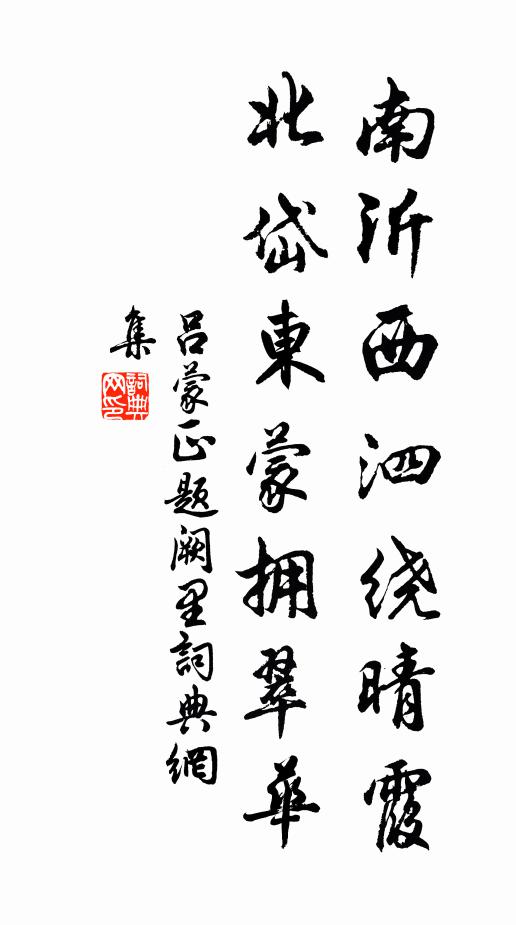 南沂西泗绕晴霞
北岱東蒙拥翠华
吕蒙正题阙里詞典網
集
詞典
网印